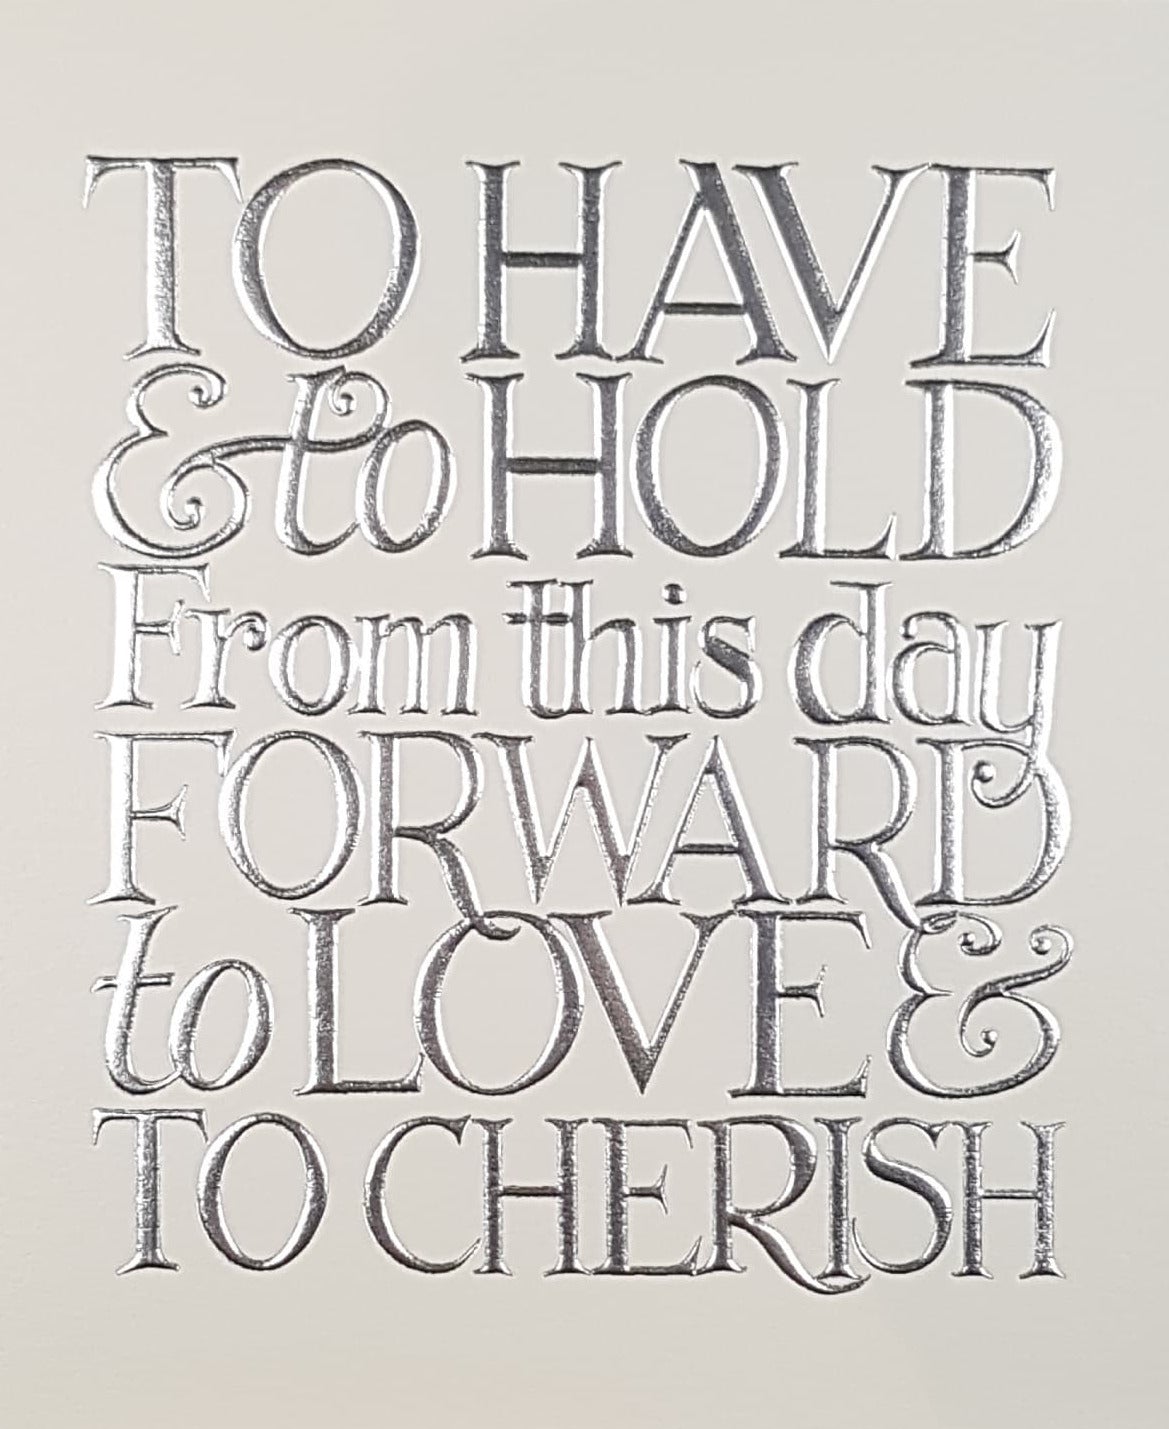 TO HAVE
& to HOLD
From this day
FORWARD
to LOVE &
TO CHERISH